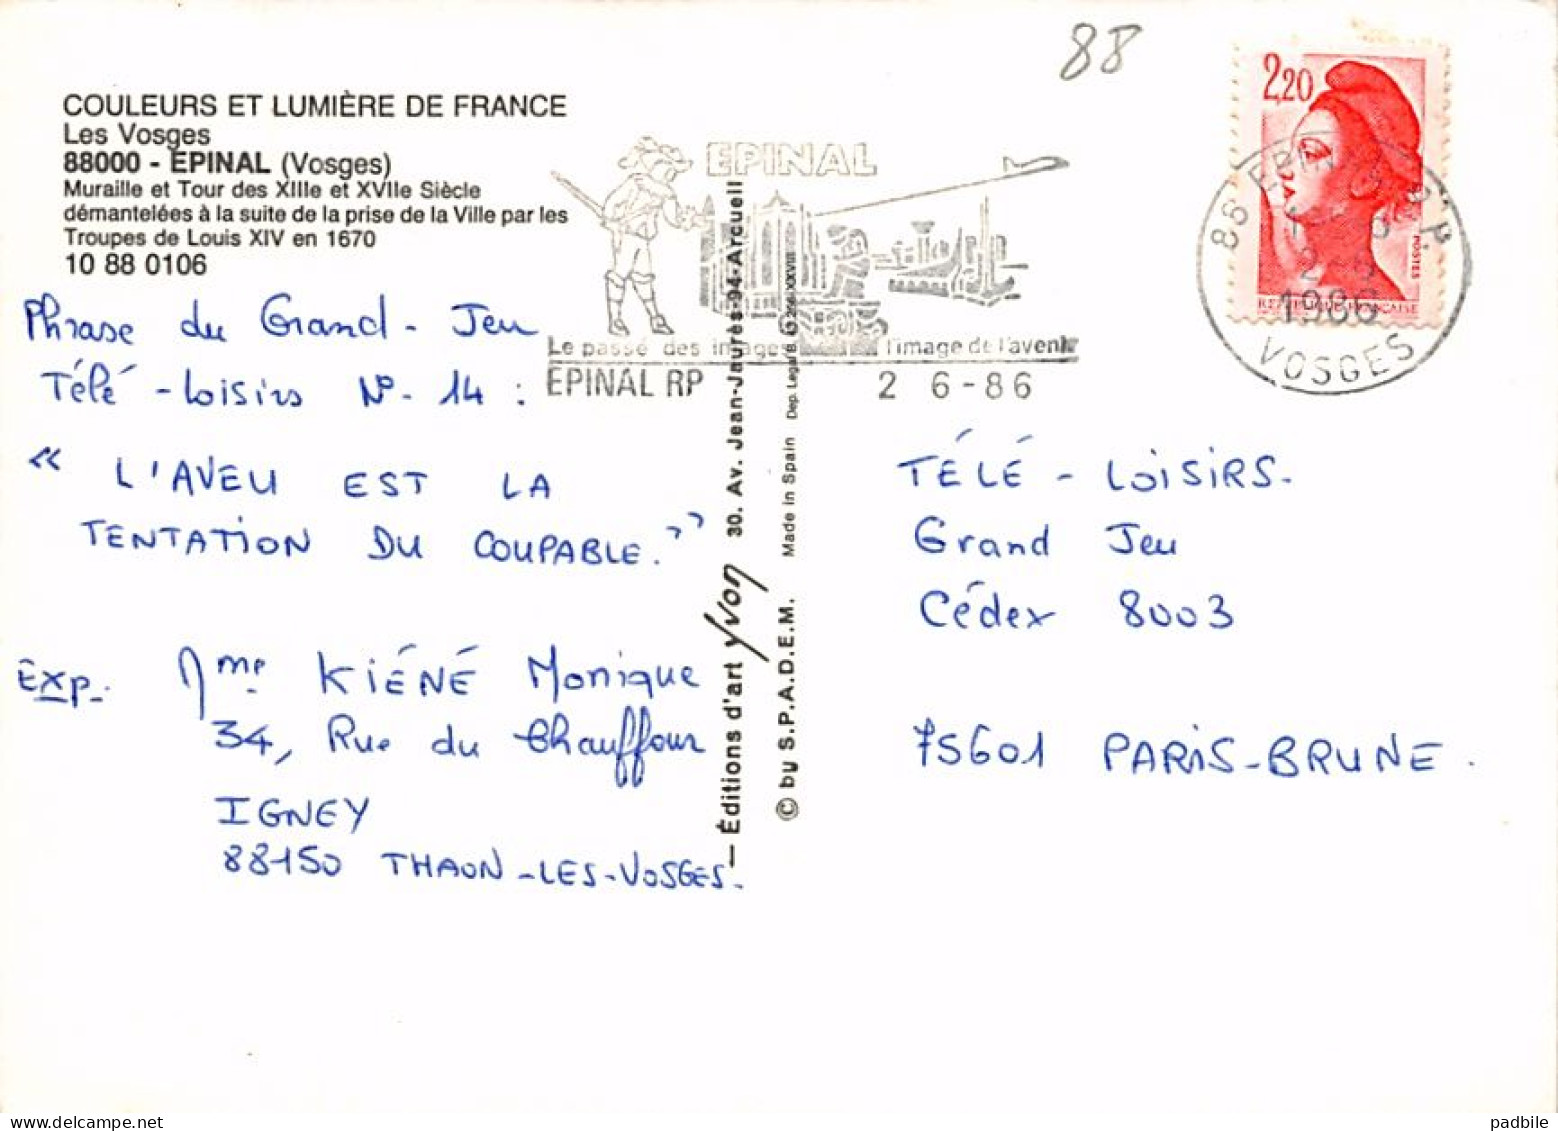 88
COULEURS ET LUMIÈRE DE FRANCE
Les Vosges
88000 - EPINAL (Vosges)
Muraille et Tour des XIIIe et XVIIe Siècle
démantelées à la suite de la prise de la Ville par les
Troupes de Louis XIV en 1670
10 88 0106
EPINAL
Le passé des images l'image de l'avenir
EPINAL RP 2 6-86
2,20
POSTES
REPUBLIQUE FRANÇAISE
88 EPINAL R.P
1986
VOSGES
Phrase du Grand-Jeu
Télé-Loisirs N°-14 :
« L'AVEU EST LA
TENTATION DU COUPABLE. »
Exp. Mme KIÉNÉ Monique
34, Rue du Chauffour
IGNEY
88150 THAON-LES-VOSGES.
— Éditions d'art Yvon 30. Av. Jean-Jaurès-94-Arcueil
© by S.P.A.D.E.M. Made in Spain Dep. Legal B. XXVIII
TÉLÉ - LOISIRS-
Grand Jeu
Cédex 8003
75601 PARIS-BRUNE.
padbile